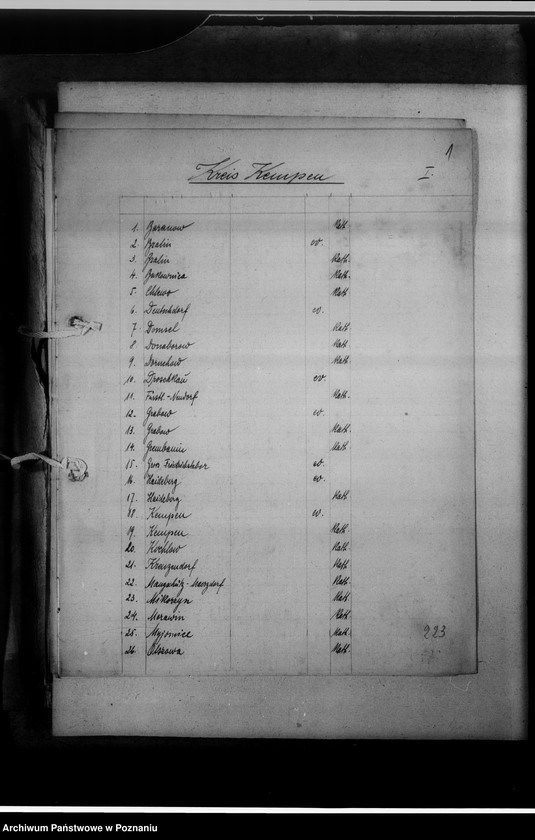 1
Kreis Kempen I.
1. Baranow Kath.
2 Bralin ev.
3. Bralin Kath.
4. Bukownica Kath.
5. Chlewo Kath.
6. Deutschdorf ev.
7 Domsel Kath.
8 Donaborow Kath.
9. Doruchow Kath.
10. Droschkau ev.
11. Fürstl.-Neudorf Kath.
12. Grabow ev.
13. Grabow Kath.
14. Grembanin Kath.
15. Gross Friedrichstabor ev.
16. Haideberg ev.
17. Haideberg Kath.
18. Kempen ev.
19. Kempen Kath.
20. Kochlow Kath.
21. Kreuzendorf Kath.
22. Mangschütz- Kath.
23. Mikorzyn Kath.
24. Morawin Kath.
25. Myjomice Kath.
26. Olszowa Kath.
223
Archiwum Państwowe w Poznaniu